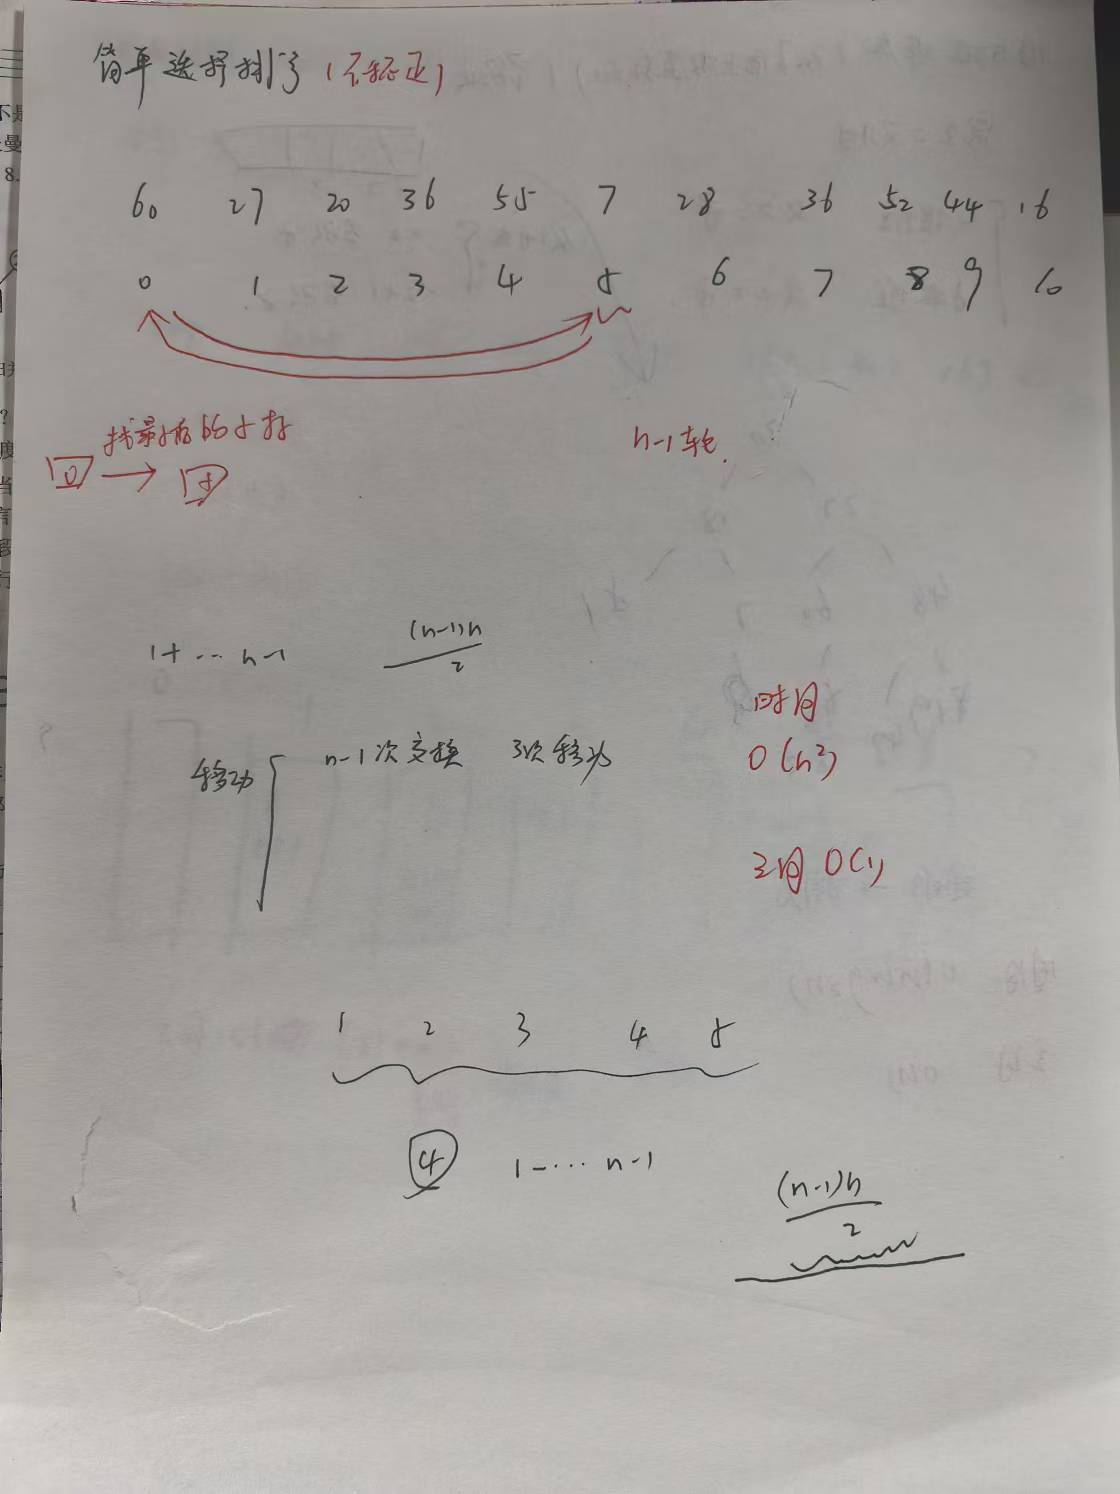 简单选择排序（不稳定）
60 27 20 36 55 7 28 36 52 44 16
0 1 2 3 4 5 6 7 8 9 10
找最小的
n-1轮.
0 →
1+ … n-1
(n-1)n
2
时间
移动
n-1次交换 3次移动
O(n²)
空间 O(1)
1 2 3 4 5
4 1-… n-1
(n-1)n
2